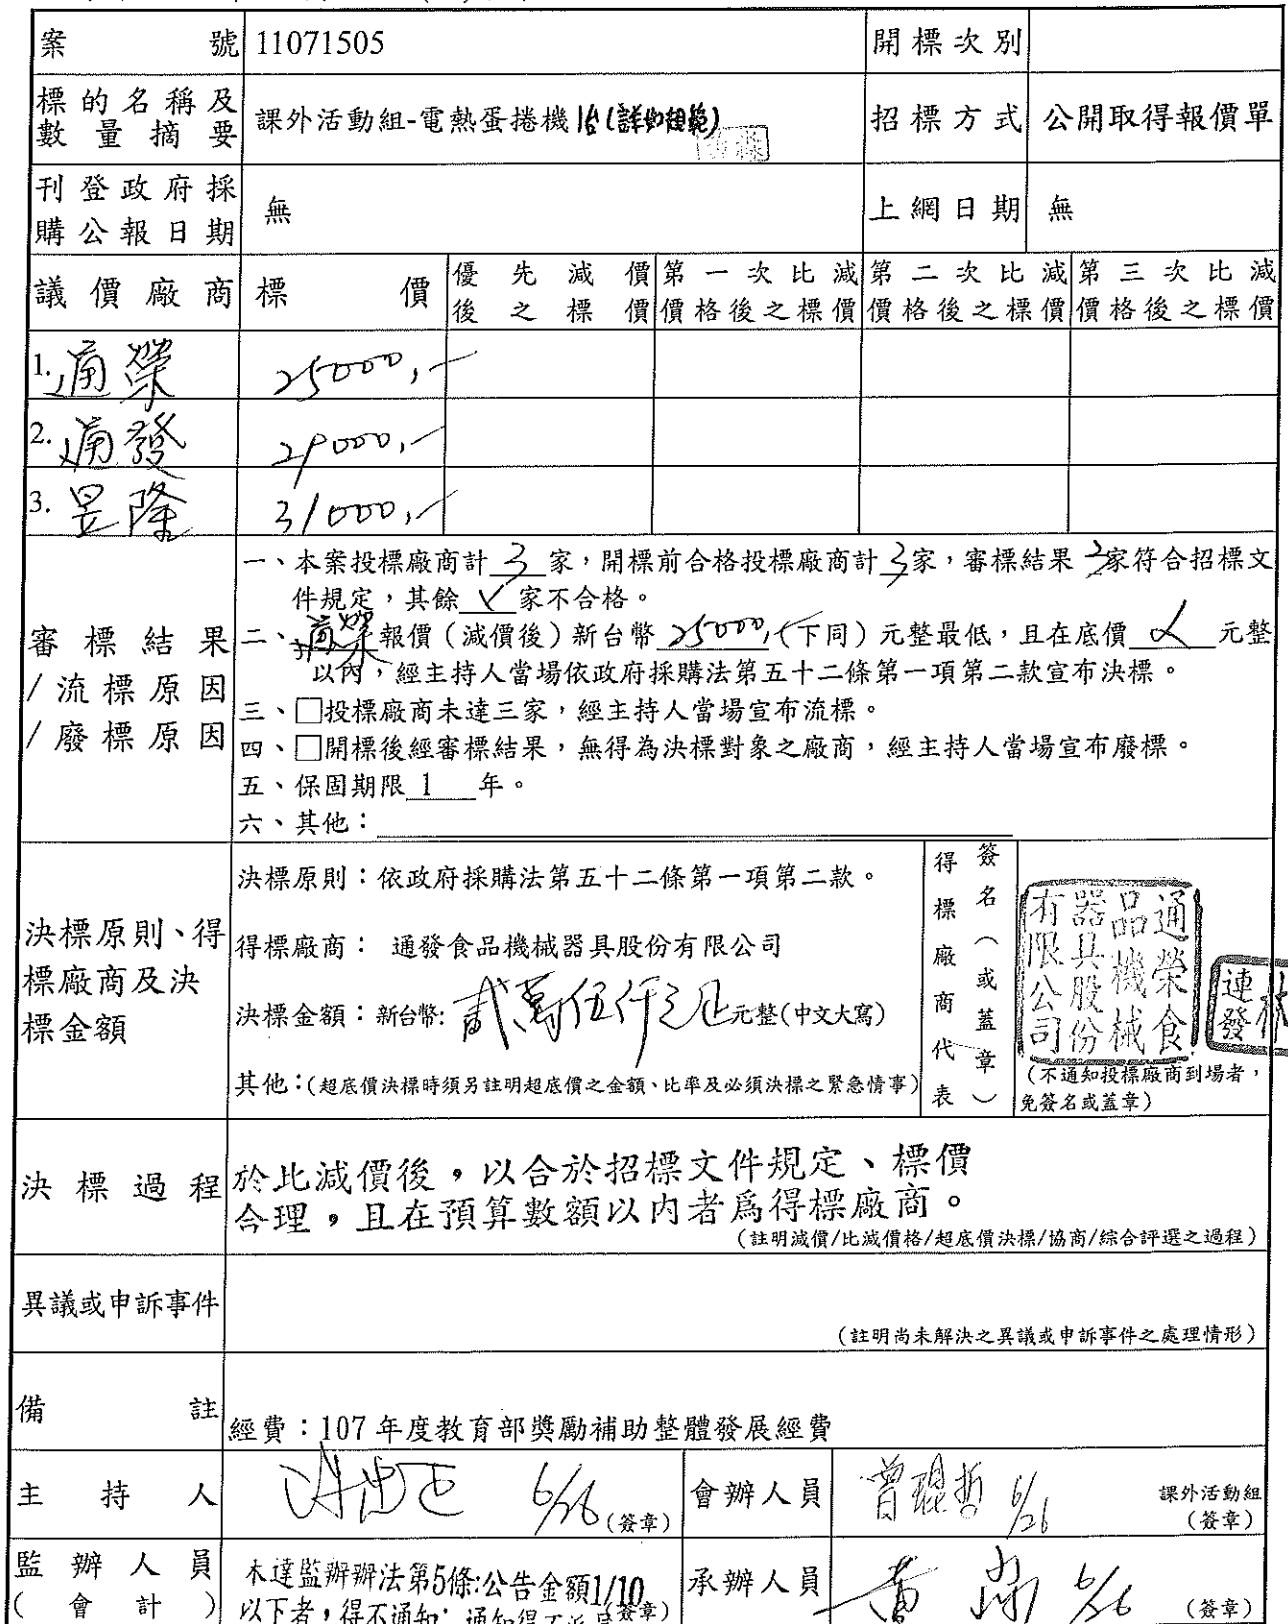 案號 11071505 開標次別
標的名稱及數量摘要 課外活動組-電熱蛋捲機1台(詳如規範) 招標方式 公開取得報價單
刊登政府採購公報日期 無 上網日期 無
議價廠商 標價 優先減價後之標價 第一次比減價格後之標價 第二次比減價格後之標價 第三次比減價格後之標價
1. 通榮 25000,-
2. 通發 29000,-
3. 昱隆 31000,-
審標結果/流標原因/廢標原因
一、本案投標廠商計 3 家，開標前合格投標廠商計 3 家，審標結果 3 家符合招標文
件規定，其餘 家不合格。
二、通榮 報價（減價後）新台幣 25000,(下同）元整最低，且在底價 元整
以內，經主持人當場依政府採購法第五十二條第一項第二款宣布決標。
三、□投標廠商未達三家，經主持人當場宣布流標。
四、□開標後經審標結果，無得為決標對象之廠商，經主持人當場宣布廢標。
五、保固期限 1 年。
六、其他：
決標原則、得標廠商及決標金額
決標原則：依政府採購法第五十二條第一項第二款。
得標廠商： 通發食品機械器具股份有限公司
決標金額：新台幣: 貳萬伍仟元正元整(中文大寫)
其他：(超底價決標時須另註明超底價之金額、比率及必須決標之緊急情事)
得標廠商代表
簽名（或蓋章）
通榮食品機械器具股份有限公司
林連發
(不通知投標廠商到場者，
免簽名或蓋章)
決標過程
於比減價後，以合於招標文件規定、標價
合理，且在預算數額以內者為得標廠商。
(註明減價/比減價格/超底價決標/協商/綜合評選之過程)
異議或申訴事件
(註明尚未解決之異議或申訴事件之處理情形)
備註 經費：107 年度教育部獎勵補助整體發展經費
主持人 6/26 (簽章) 會辦人員 曾琨哲 6/26 課外活動組
(簽章)
監辦人員
(會計)
未達監辦辦法第5條:公告金額1/10
以下者，得不通知; (簽章)
承辦人員 6/26 (簽章)